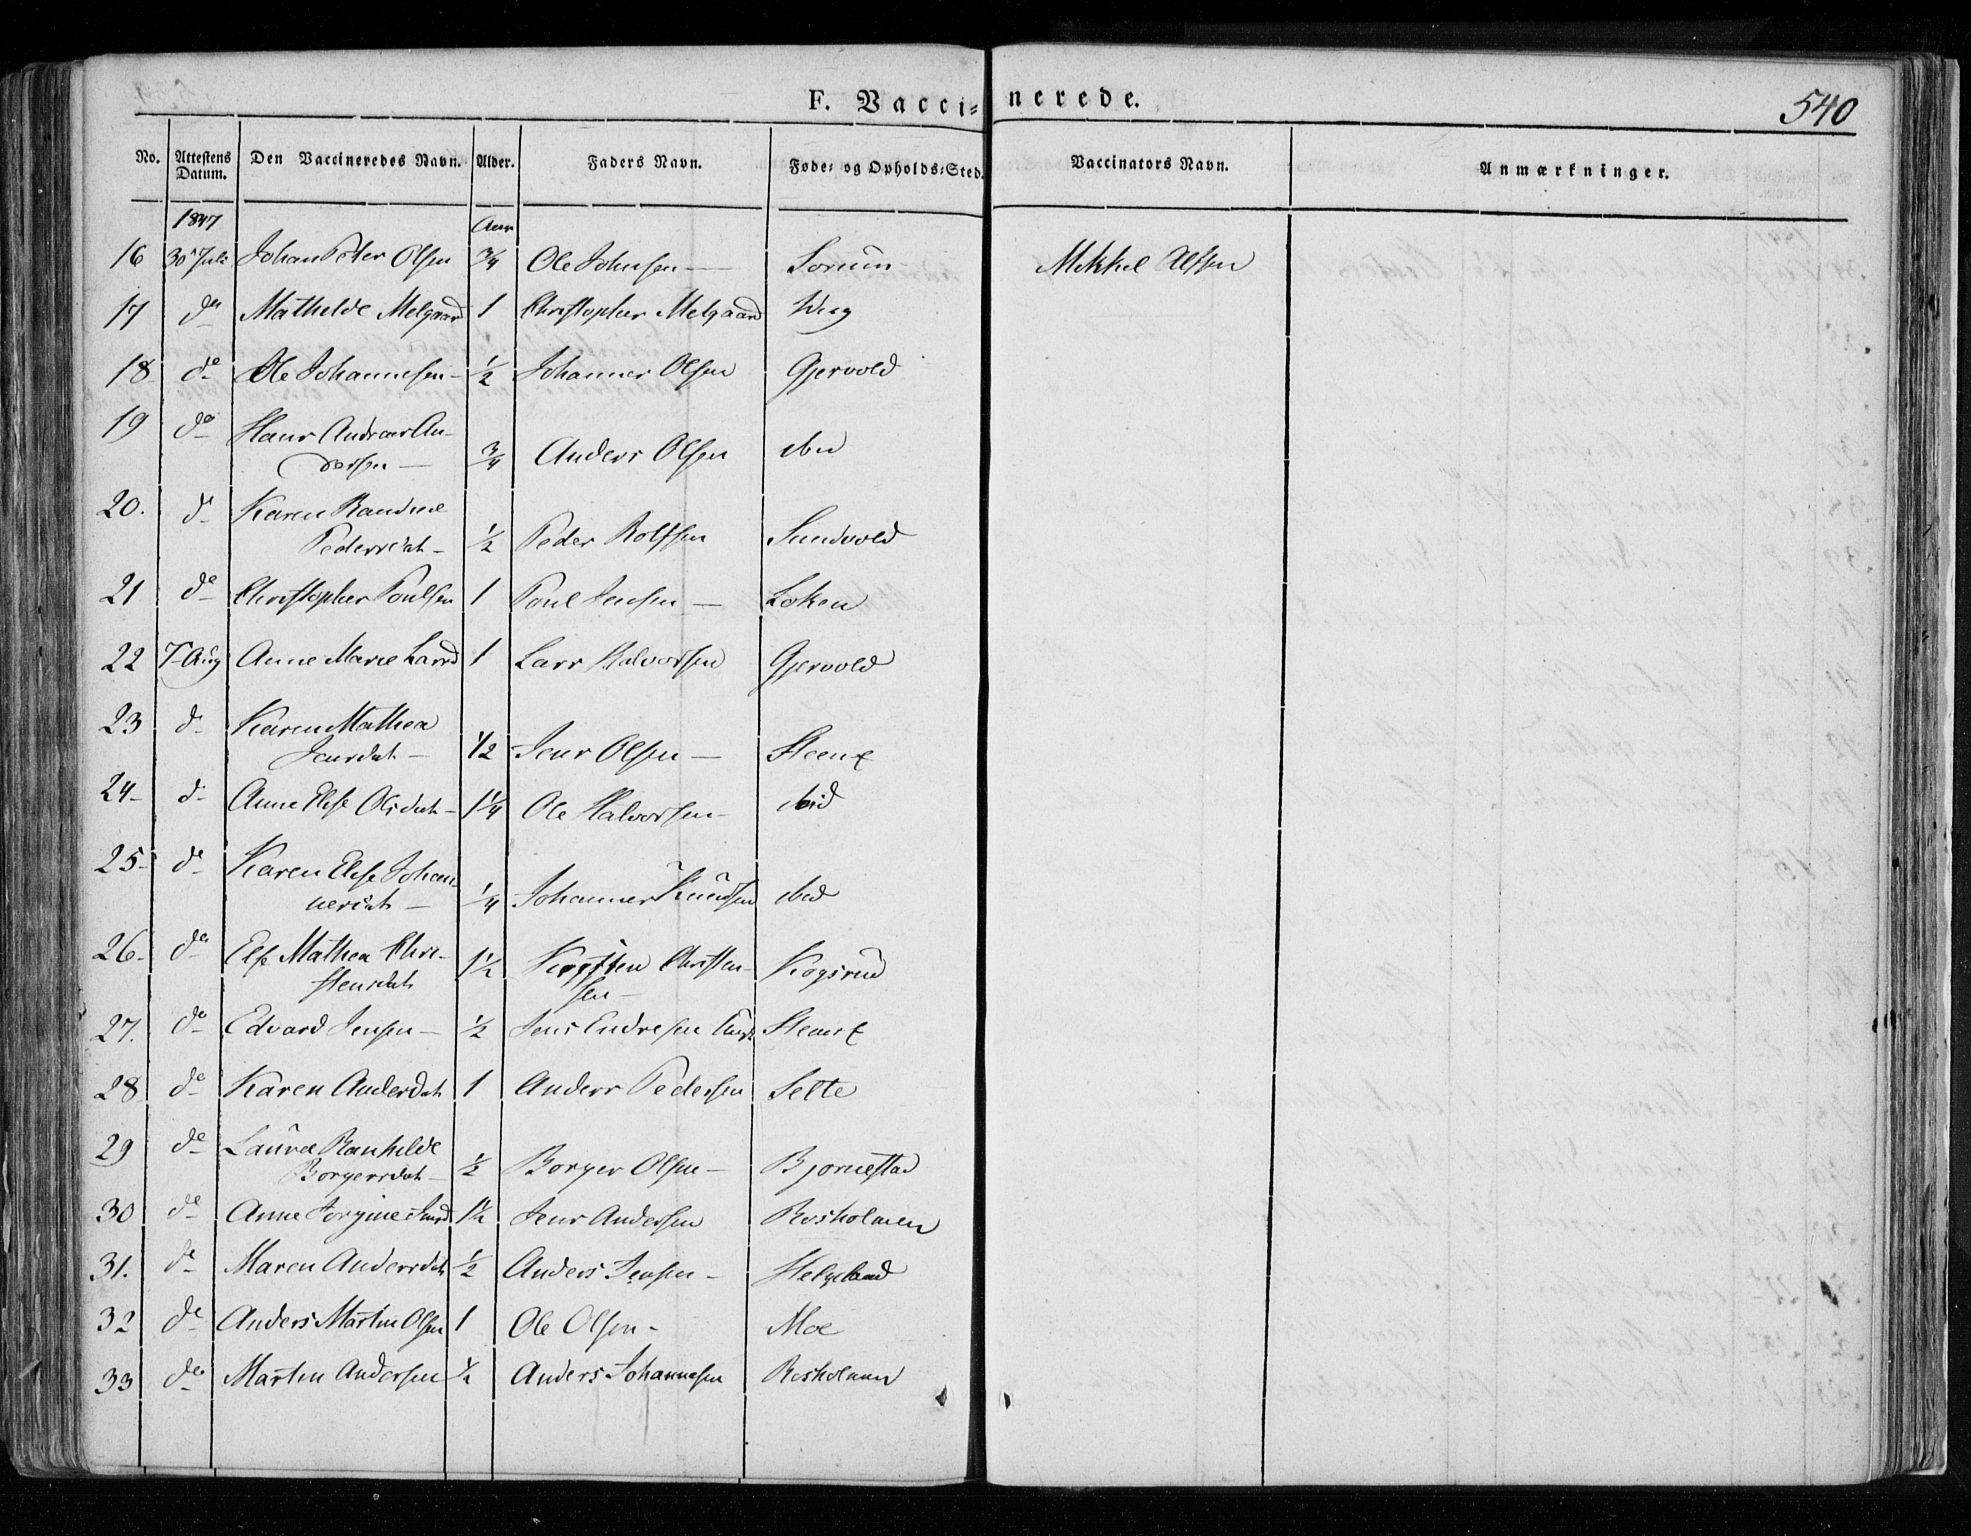 F. Vaccinerede.
540
No. Attestens Datum. Den Vaccineredes Navn. Alder. Faders Navn. Føde= og Opholds=Sted. Vaccinators Navn. Anmærkninger.
1847 Aar
16 30 Juli Johan Peter Olsen 3/4 Ole Johnsen — Sorum Mikkel Olsen
17 do Mathilde Melgaard 1 Christopher Melgaard
18 do Ole Johannesen — 1/2 Johannes Olsen Gjervold
19 do Hans Andreas An-
dersen — 3/4 Anders Olsen ibid
20. do Karen Randine
Pedersdat — 1/2 Peder Rolfsen Sundvold
21 do Christopher Poulsen 1 Poul Jensen — Loken
22 7 Aug Anne Marie Larsd 1 Lars Halvorsen Gjervold
23 do Karen Mathea
Jensdat — 1/2 Jens Olsen —
24 do Anne Else Olsdat — 1 1/4 Ole Halvorsen — ibid
25 do Karen Else Johan-
nesdat — 1/4 Johannes Knudsen ibid
26 do Else Mathea Chri-
stensdat 1 1/2 Christen-
sen — Kogsrud
27. do Edvard Jensen — 1/2 Jens Endresen
28 do Karen Andersdat 1 Anders Pedersen Sette
29 do Laura Ranhilde
Borgersdat — 1/2 Borger Olsen — Bjornestad
30 do Anne Jorgine Jensd 1 1/2 Jens Andersen Rosholmen
31. do Maren Andersdat 1/2 Anders Jensen — Helgeland
32 do Anders Martin Olsen 1 Ole Olsen — Moe
33 do Martin Andersen 1/2 Anders Johannesen Rosholmen